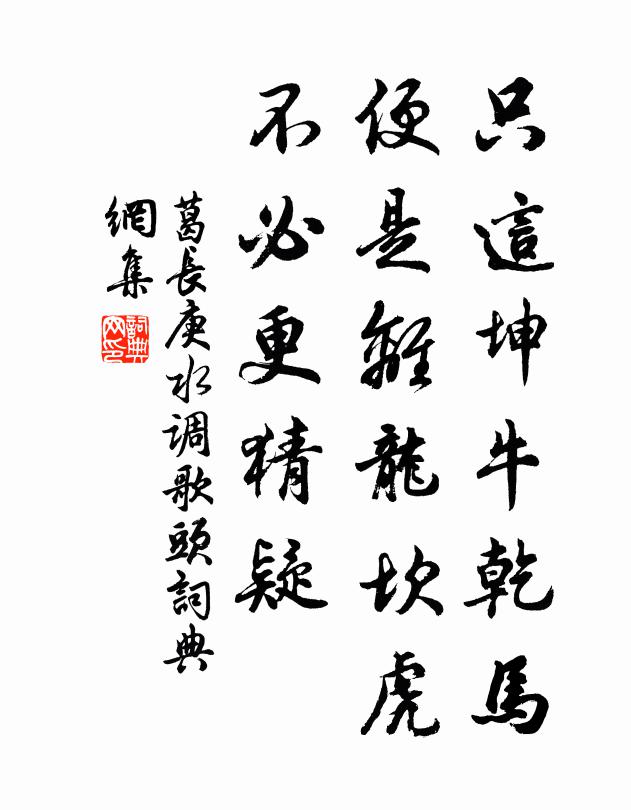 只這坤牛乾馬
便是離龍坎虎
不必更猜疑
葛長庚水调歌頭詞典
網集
詞典
网印